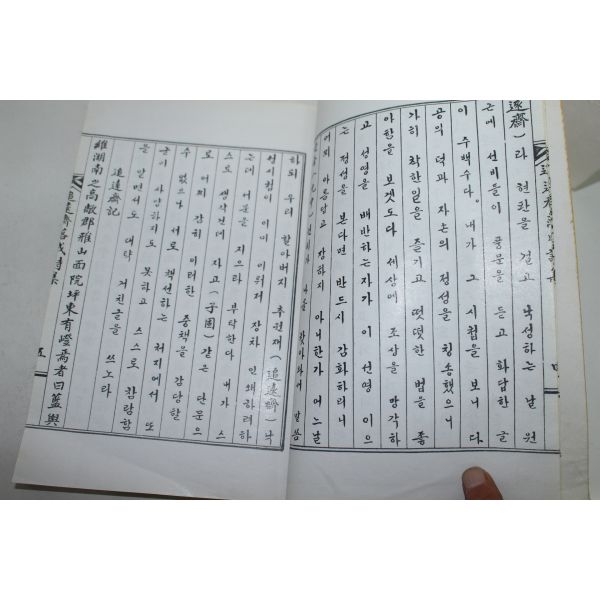 遠齋)라 현판을 걸고 낙성하는 날 원
근에 선비들이 풍문을 듣고 화답한 글
이 수백수다. 내가 그 시첩을 보니 다
공의 덕과 자손의 정성을 칭송했으니
가히 착한일을 즐기고 떳떳한 법을 좋
아함을 보겟도다 세상에 조상을 망각하
고 선영을 배반하는자가 이 선영 이으
는 정성을 본다면 반드시 감화하리니
어찌 아름답고 감하지 아니한가 어느날
하되 우리 할아버지 추원재(追遠齋) 낙
성시첩이 이미 이뤄저 장차 인쇄하려하
는데 서문을 지으라 부탁한다 내가 스
스로 생각건데 자고(子固)같은 단문으
로 어찌 감히 이러한 중책을 감당할
수 없으나 서로 책선하는 처지에서 또
굳이 사양하지도 못하고 스스로 참람함
을 알면서도 대략 거친글을 쓰노라
追遠齋記
維湖南之高敞郡雅山面院坪東有嶝焉者曰藍輿
追遠齋落成詩集
五